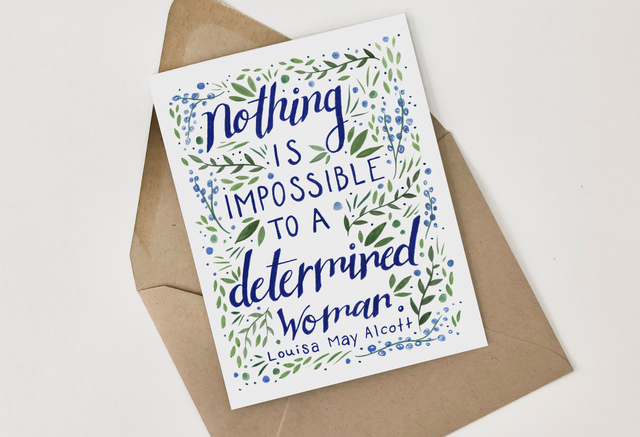 Nothing
IS
IMPOSSIBLE
TO A
determined
Woman.
Louisa May Alcott